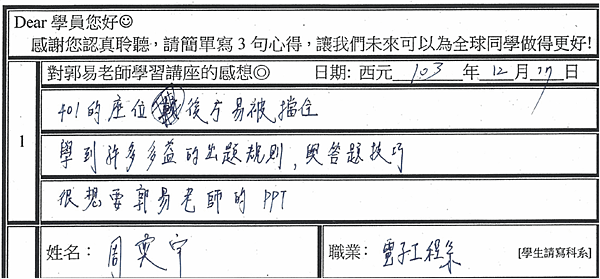 Dear 學員您好☺
感謝您認真聆聽，請簡單寫3句心得，讓我們未來可以為全球同學做得更好!
對郭易老師學習講座的感想◎ 日期: 西元 103 年 12 月 27 日
1
401的座位 後方易被擋住
學到許多多益的出題規則,與答題技巧
很想要郭易老師的 PPT
姓名: 周奕宇 職業: 電子工程系 [學生請寫科系]